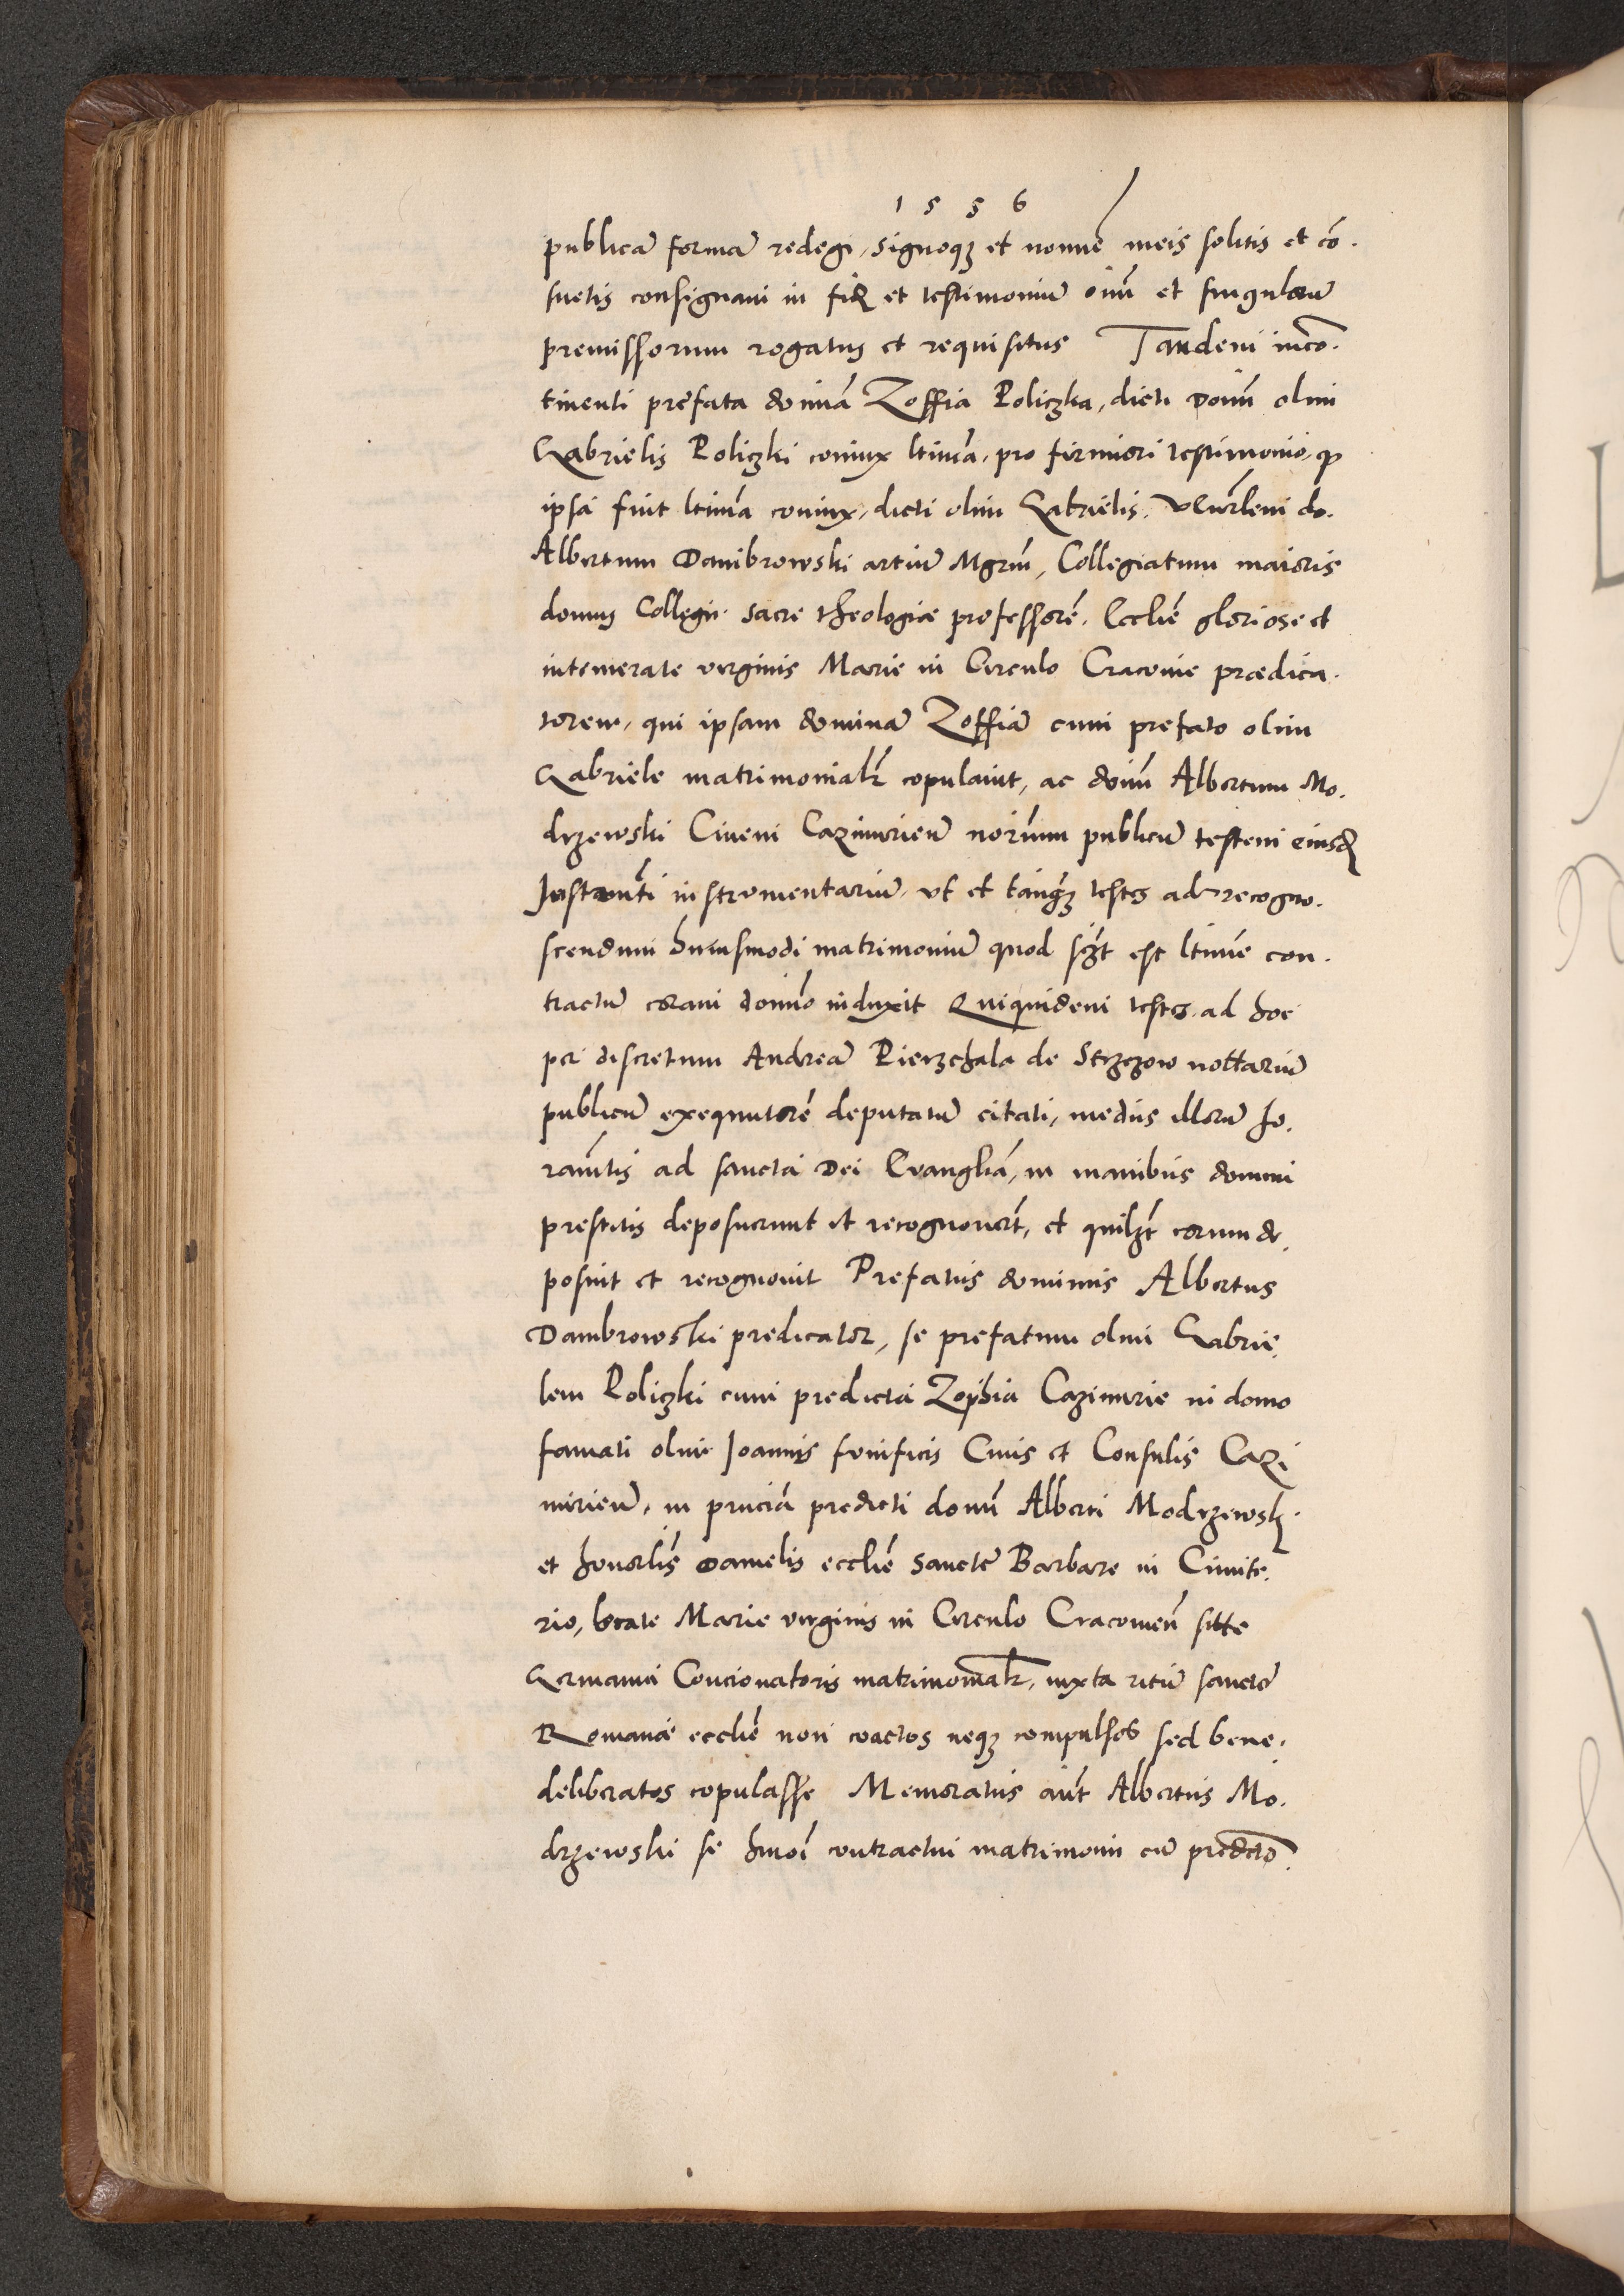 1 5 5 6
publicā formā redegi, signoqʒ et nomīe meis solitis et cō.
suetis consignaui in fidē et testimoniū oīm et singulorū
premissorum rogatus et requisitus Tandem incō.
tinenti prefata domina Zoffia Policzka, dicti Domī olim
Gabrielis Policzki coniux ltima, pro firmiori testimonio, qͥ
ipsa fuit ltima coniux, dicti olim Gabrielis, do.
Albertum Dambrowski artiū Mgrm̄, Collegiatum maioris
domus Collegij. sacre theologiæ professorē. Ecclīe gloriose et
intemerate virginis Marie in Circulo Cracouie prædica.
torem, qui ipsam dominā Zoffiā cum prefato olim
Gabriele matrimonialr copulauit, ac dom̄ Albertum Mo.
drzewski Ciuem Cazimirień norium publicū testem eiusd
Instan̄ti instrumentariū, vt et tanqʒ testes ad recogno.
scendum huiusmodi matrimoniū quod sczt est ltime con.
tractū coram domīo induxit Quiquidem testes ad hoc
per discretum Andreā Pierzchala de Strzezow nottariū
publicū exequutorē deputatū citati, medijs illorū Iu.
ramtis ad sancta Dei Evanglia, in manibus domini
prestitis deposuerunt et recognouert, et quilzt eorum de.
posuit et recognouit Prefatus dominus Albertus
Dambrowski predicator, se prefatum olim Gabrie.
lem Policzki cum predicta Zophia Cazimirie in domo
famati olim Joannis funificis Ciuis et Consulis Cazi
mirień, in pñcia predicti domī Alberti Modrzewsk.
et honorlis Danielis ecclīe Sancte Barbare in Cimite.
rio, beate Marie virginis in Circulo Cracouień sitte
Germanici Concionatoris matrimonialr, iuxta ritū sancte
Romanæ ecclīe non coactos neqʒ compulsos sed bene.
deliberatos copulasse Memoratus aūt Albertus Mo.
drzewski se hmōi contractui matrimonij cū predicto.